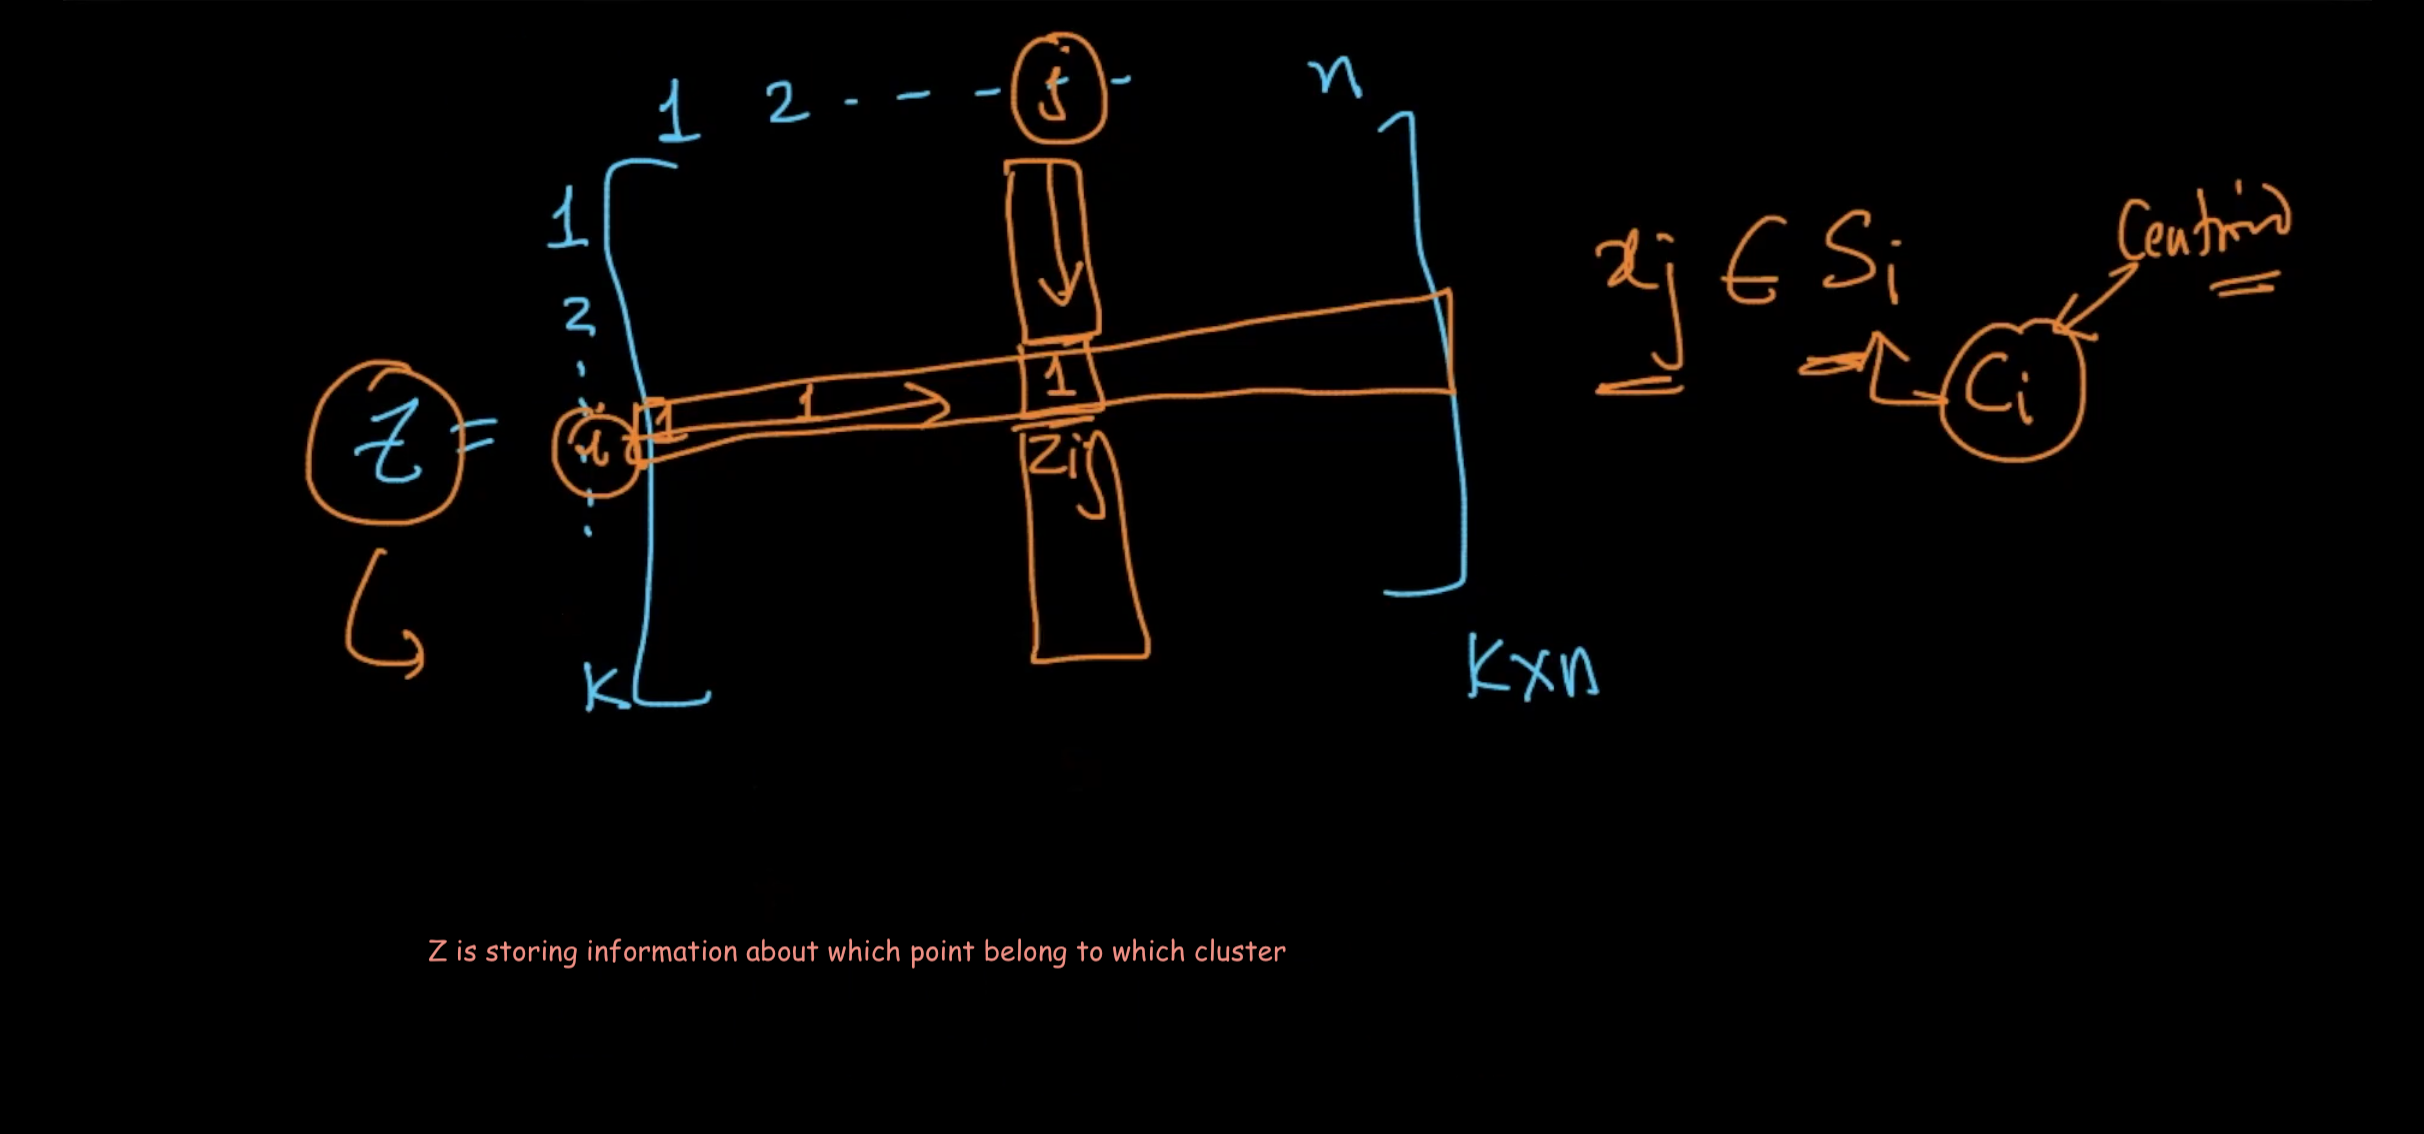 1 2 - - - j - n
1
2
Z =
i 1 1 1
Zij
K
K x n
xj ∈ Si
Centroid
Ci
Z is storing information about which point belong to which cluster